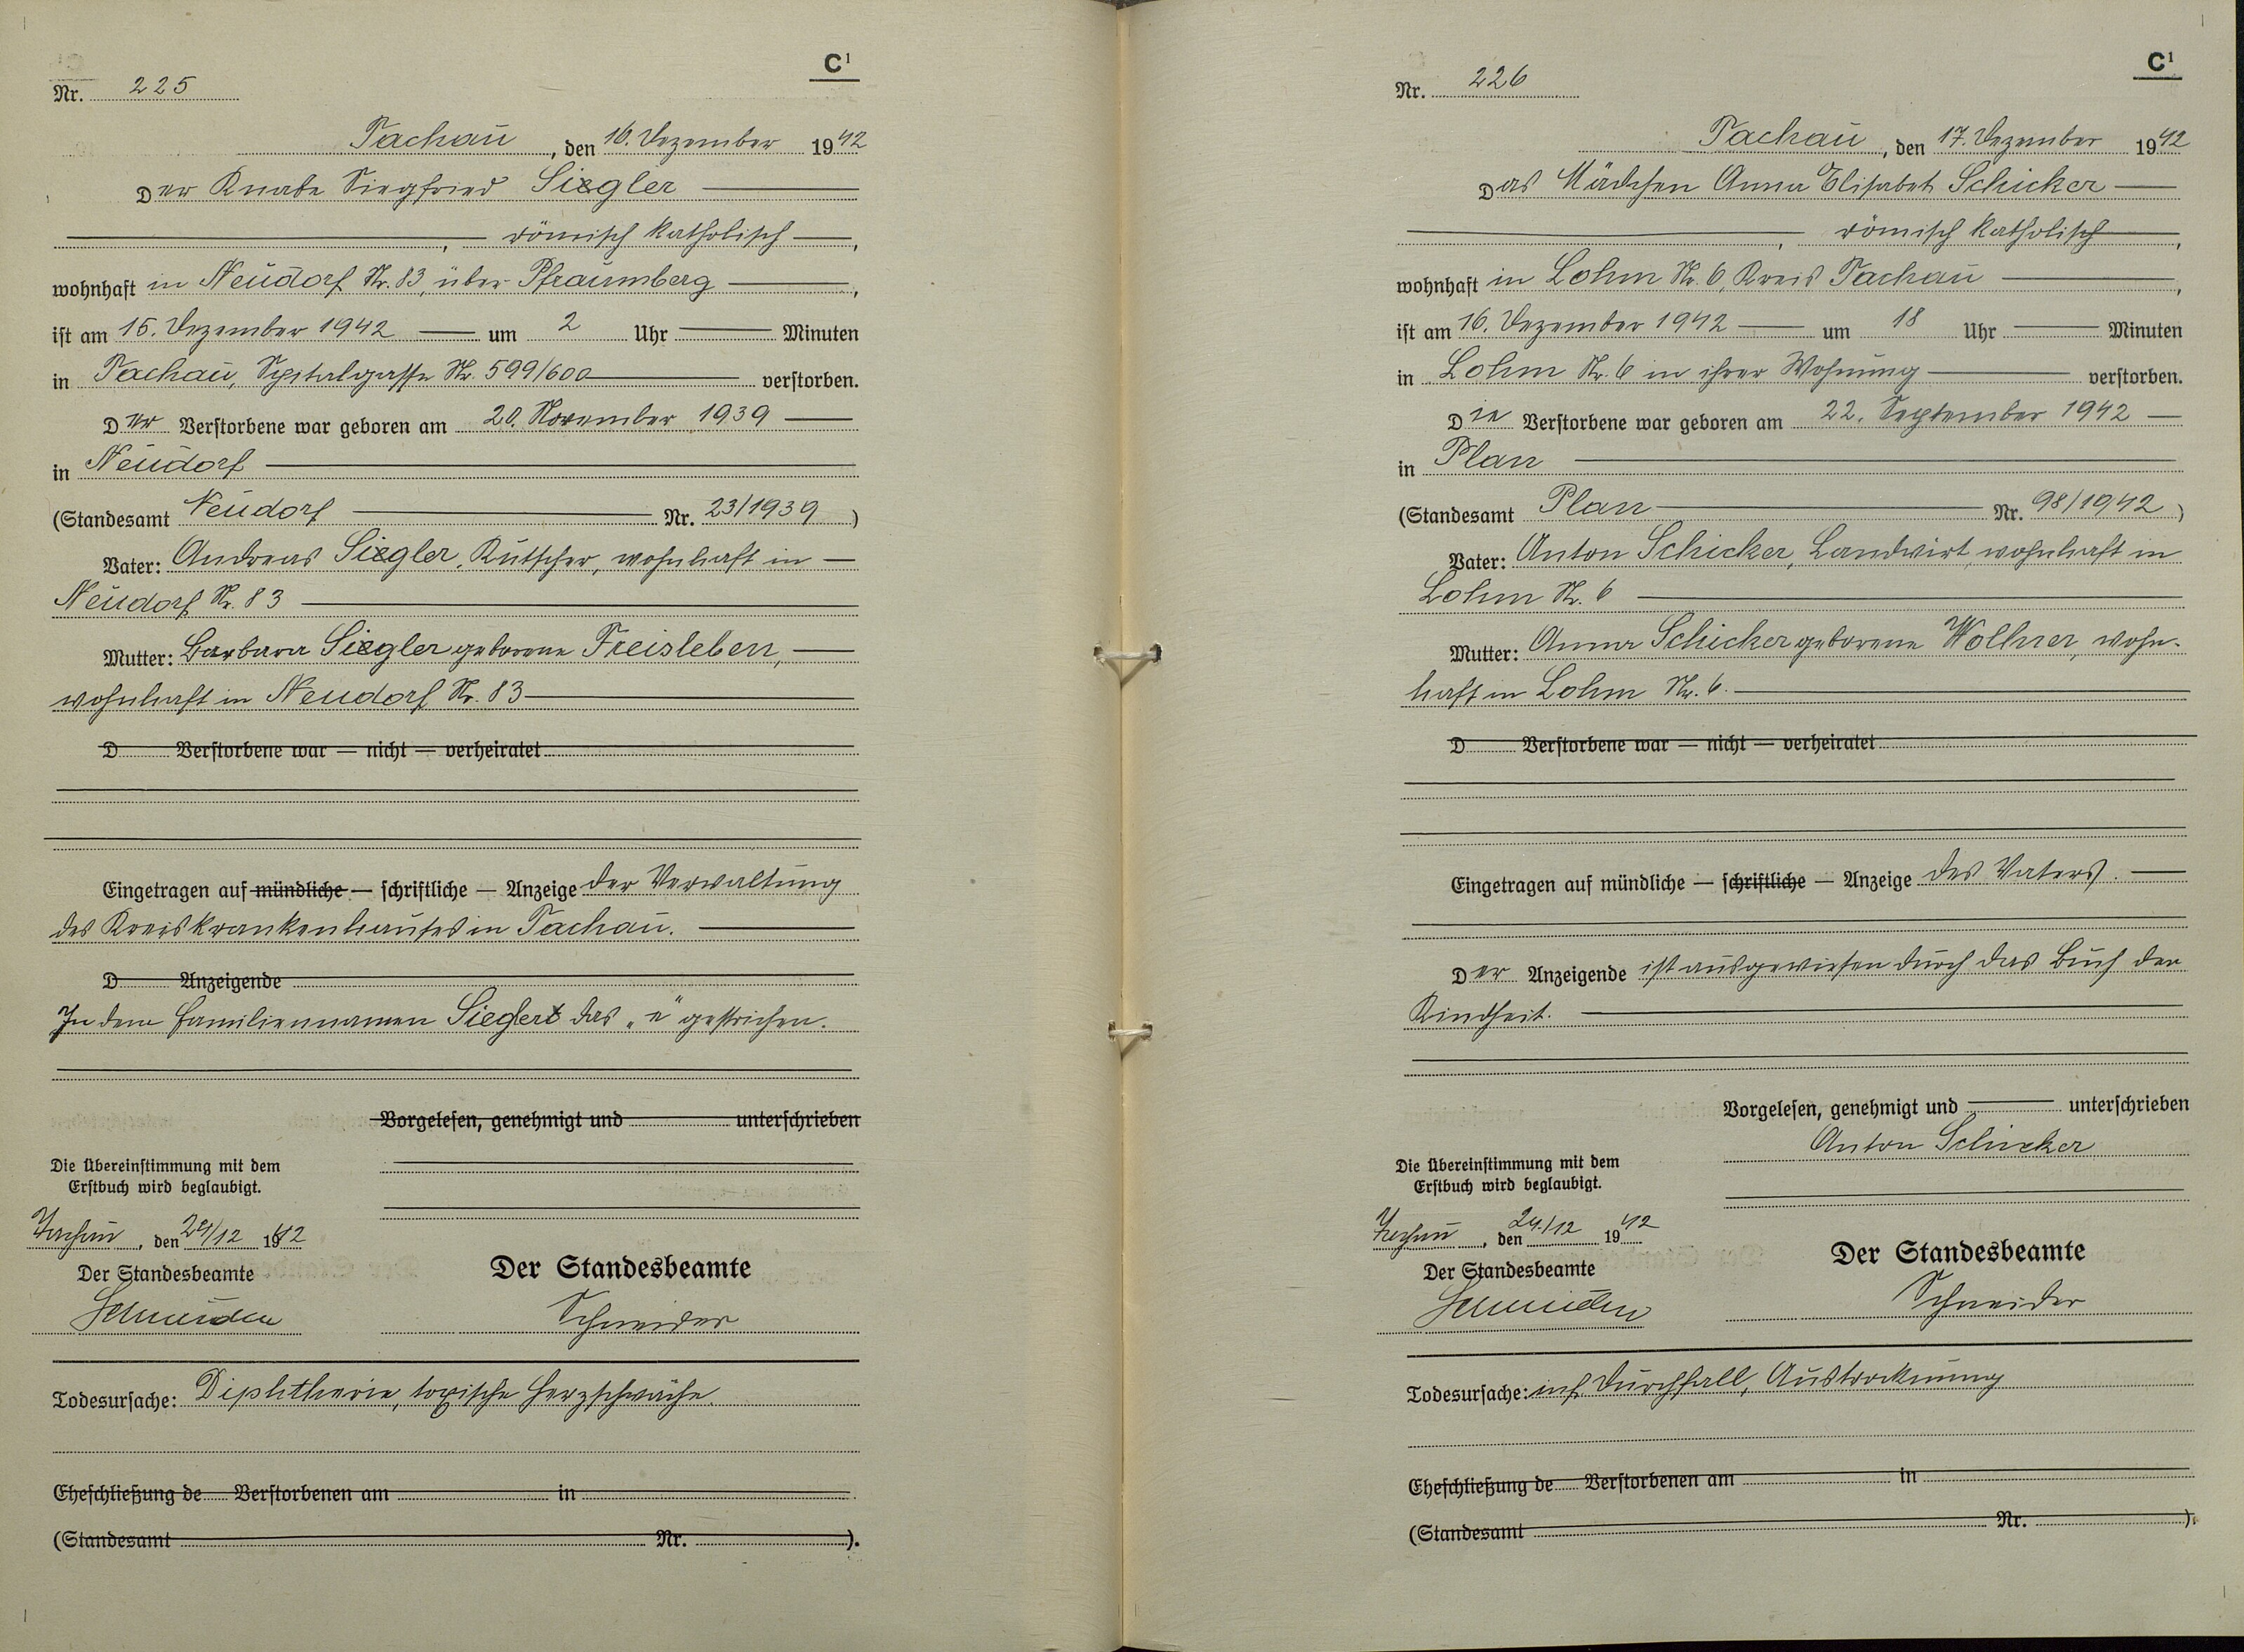 C¹
Nr. 225
Tachau, den 16. Dezember 1942
Der Knabe Siegfried Siegler
römisch katholisch,
wohnhaft in Neudorf Nr. 83, über Pfraumberg,
ist am 15. Dezember 1942 um 2 Uhr Minuten
in Tachau, Spitalgasse Nr. 599/600 verstorben.
Der Verstorbene war geboren am 20. November 1939
in Neudorf
(Standesamt Neudorf Nr. 23/1939)
Vater: Andreas Siegler, Kutscher, wohnhaft in
Neudorf Nr. 83
Mutter: Barbara Siegler geborene Freisleben,
wohnhaft in Neudorf Nr. 83
D Verstorbene war — nicht — verheiratet
Eingetragen auf mündliche — schriftliche — Anzeige der Verwaltung
des Kreiskrankenhauses in Tachau.
D Anzeigende
In dem Familiennamen Siegler das „e" gestrichen.
Vorgelesen, genehmigt und unterschrieben
Die Übereinstimmung mit dem
Erstbuch wird beglaubigt.
Tachau, den 24/12 1942
Der Standesbeamte
Der Standesbeamte
Schneider
Schneider
Todesursache: Diphtherie, toxische Herzschwäche.
Eheschließung de Verstorbenen am in
(Standesamt Nr. ).
C¹
Nr. 226
Tachau, den 17. Dezember 1942
Das Mädchen Anna Elisabet Schicker
römisch katholisch,
wohnhaft in Lohm Nr. 6, Kreis Tachau,
ist am 16. Dezember 1942 um 18 Uhr Minuten
in Lohm Nr. 6 in ihrer Wohnung verstorben.
Die Verstorbene war geboren am 22. September 1942
in Plan
(Standesamt Plan Nr. 98/1942)
Vater: Anton Schicker, Landwirt, wohnhaft in
Lohm Nr. 6
Mutter: Anna Schicker geborene Wollner, wohn-
haft in Lohm Nr. 6.
D Verstorbene war — nicht — verheiratet
Eingetragen auf mündliche — schriftliche — Anzeige des Vaters.
Der Anzeigende ist ausgewiesen durch das Buch der
Kindheit.
Vorgelesen, genehmigt und unterschrieben
Anton Schicker
Die Übereinstimmung mit dem
Erstbuch wird beglaubigt.
Tachau, den 24./12 1942
Der Standesbeamte
Der Standesbeamte
Schneider
Schneider
Todesursache: inf. Durchfall, Austrocknung
Eheschließung de Verstorbenen am in
(Standesamt Nr. ).